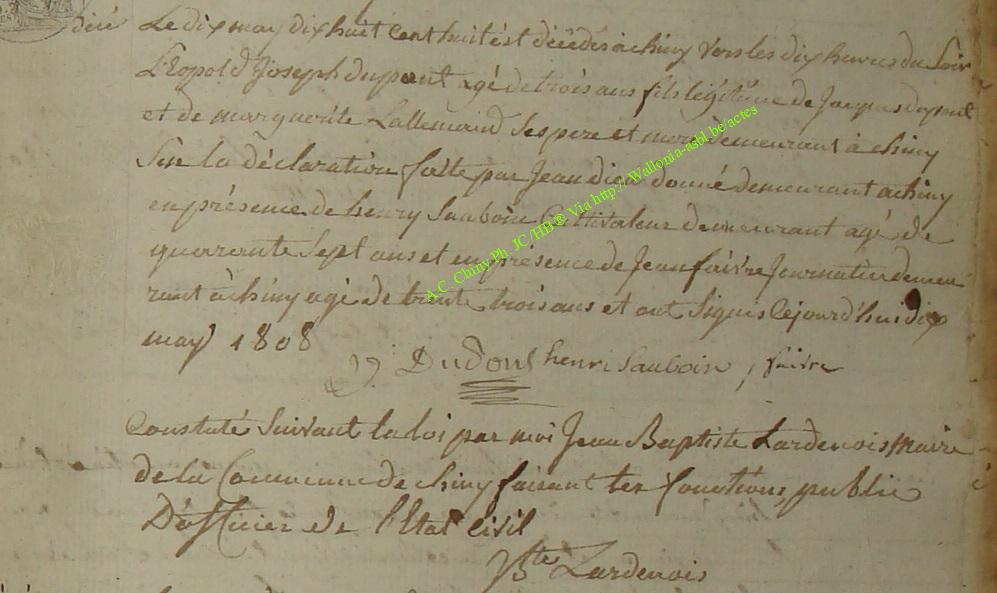 décé
Le dix may dix huit cent huit est décédés à chiny vers les dix heures du Soir
Léopold Joseph dupont agé de trois ans fils légitime de Jacques dupont
et de marguerite Lallemand Ses pere et mere demeurant à chiny
Sur la déclaration faitte par Jean dieu donné demeurant a chiny
en présence de henry Sauboin Cultivateur demeurant agé de
quarante Sept ans et en présence de Jean faivre Journalier demeu-
rant à chiny agé de trente trois ans et ont Signés Cejourd'hui dix
may 1808
henri Sauboin , faivre
Constaté Suivant la loi par moi Jean Baptiste Lardenois Maire
de la Commune de chiny faisant les fonctions public
D'officier de l'Etat Civil
JBte Lardenois
A.C. Chiny Ph. JC/HB® Via http://Wallonia-asbl.be/actes